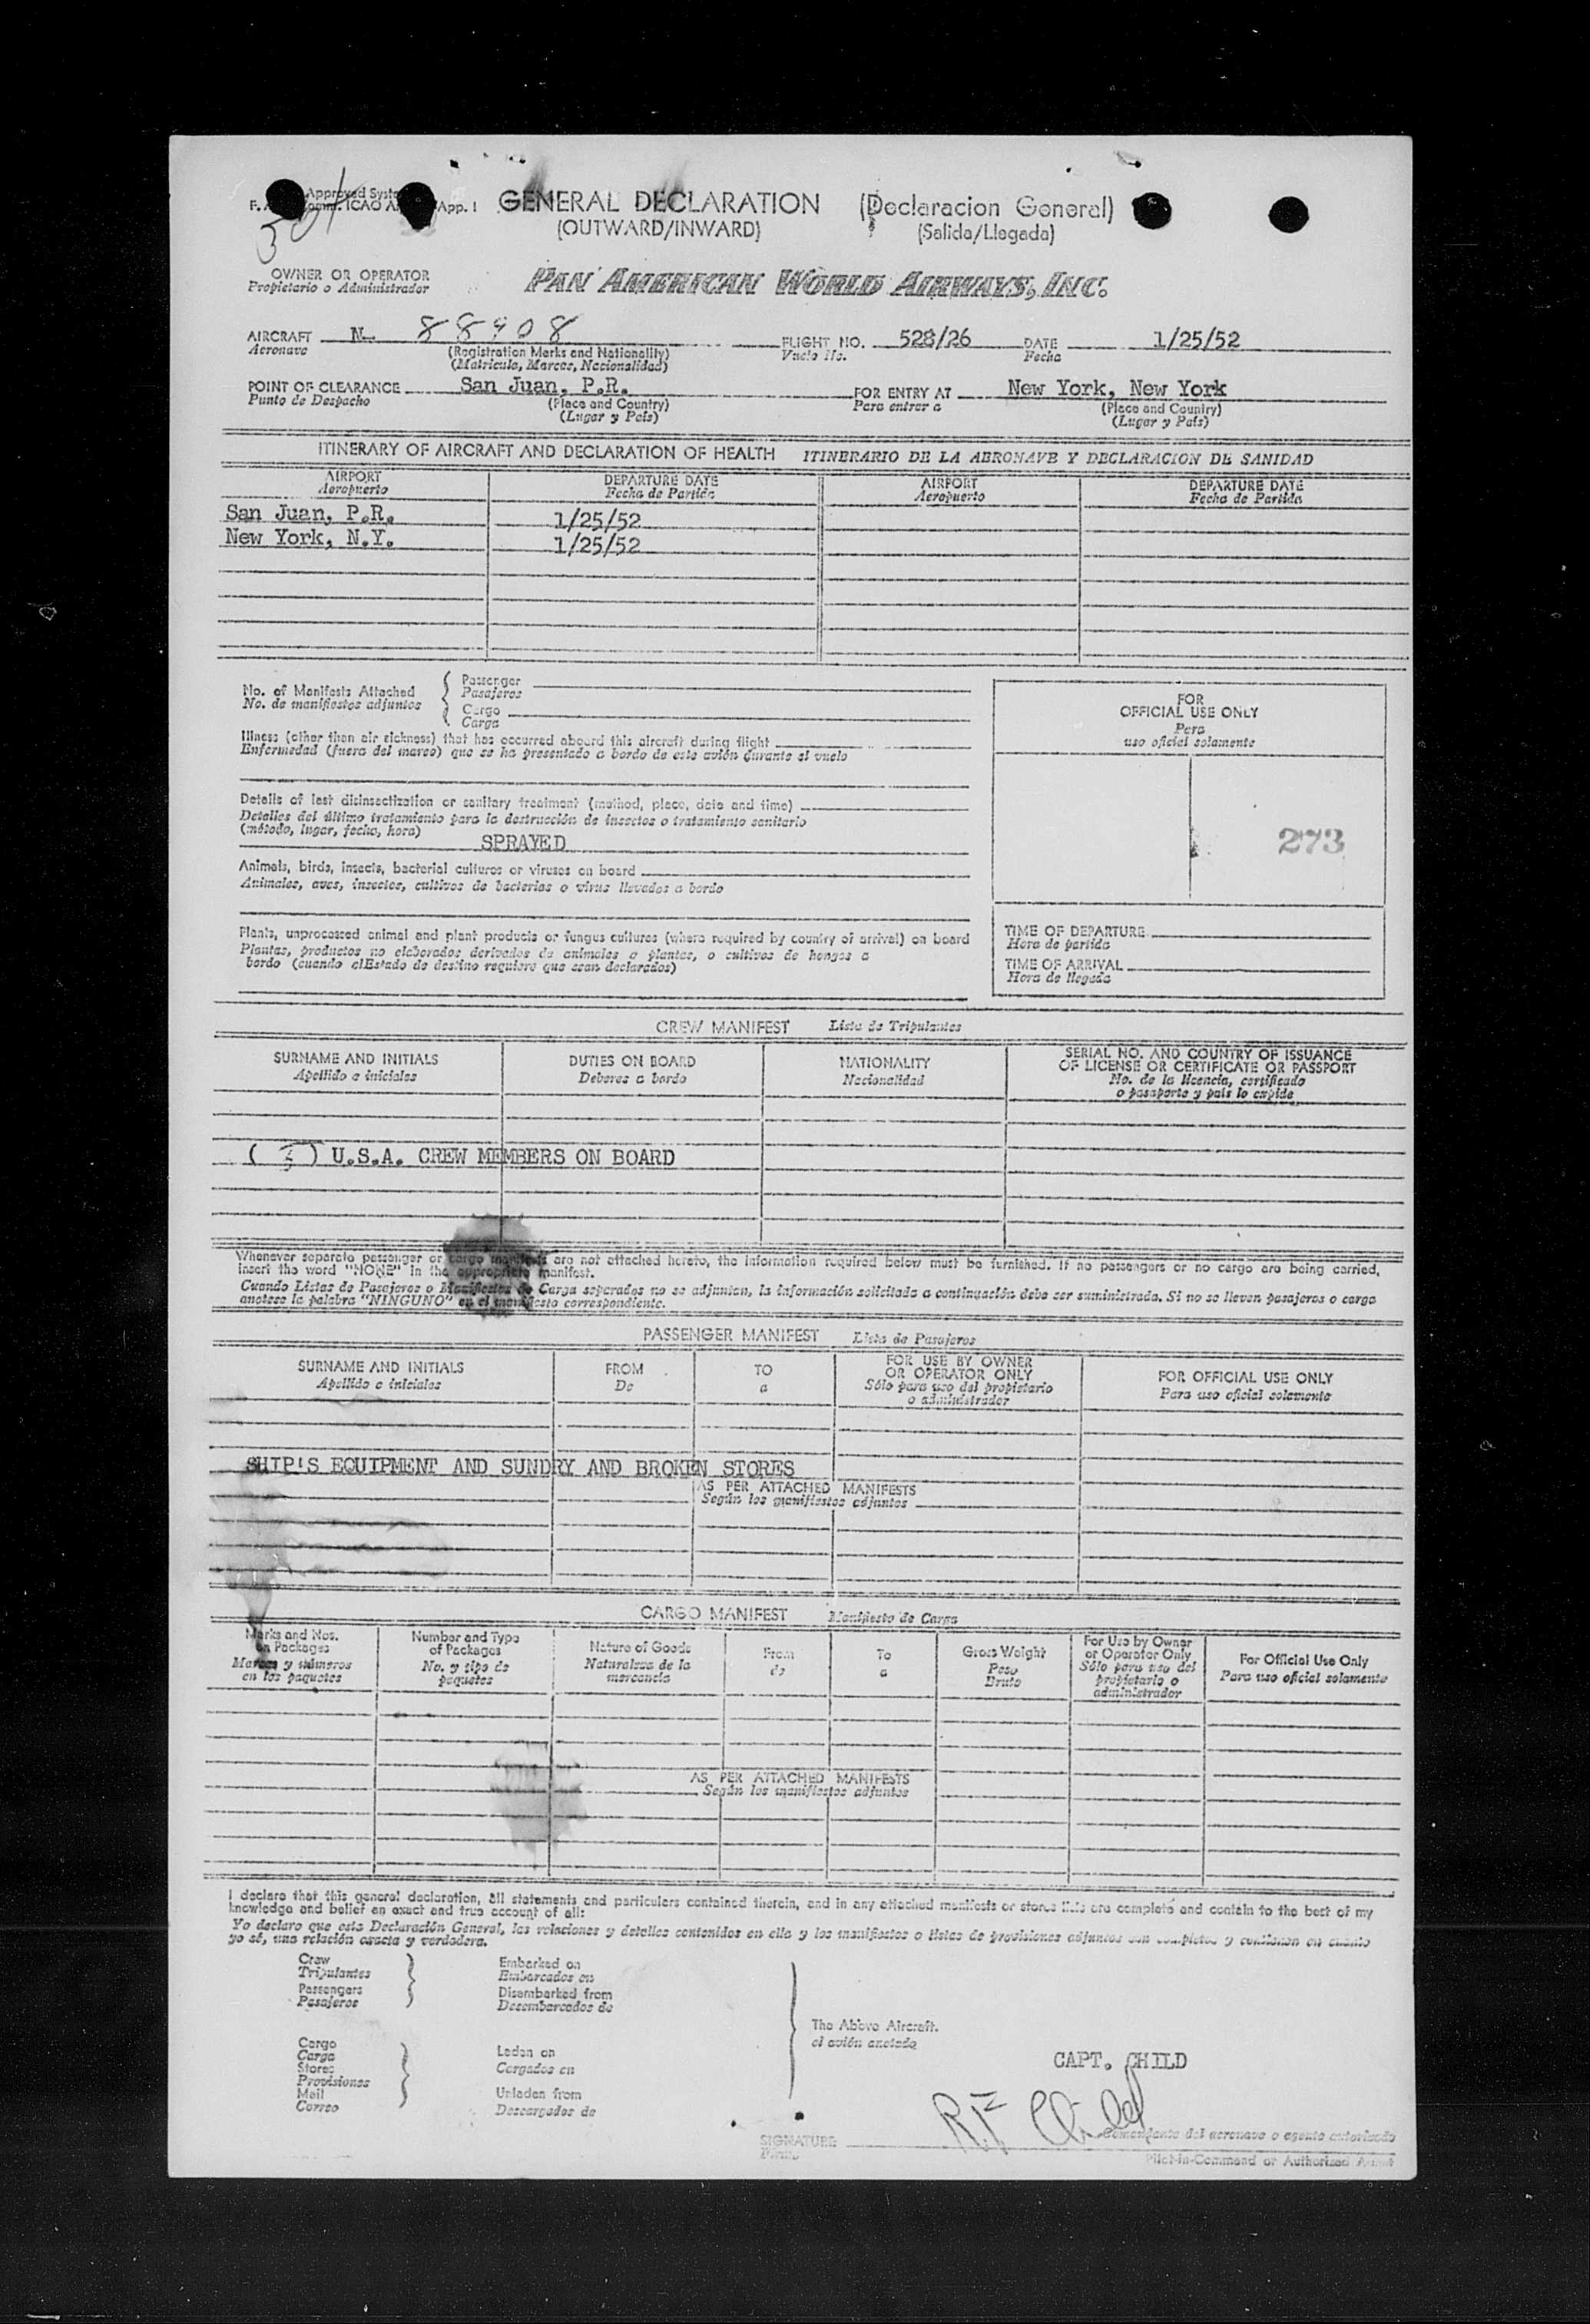 Approved
F. ICAO App. I
301
GENERAL DECLARATION (Declaracion General)
(OUTWARD/INWARD) (Salida/Llegada)
OWNER OR OPERATOR
Propietario o Administrador
PAN AMERICAN WORLD AIRWAYS, INC.
AIRCRAFT N 88908 FLIGHT NO. 528/26 DATE 1/25/52
Aeronave (Registration Marks and Nationality) Vuelo No. Fecha
(Matricula, Marcas, Nacionalidad)
POINT OF CLEARANCE San Juan, P.R. FOR ENTRY AT New York, New York
Punto de Despacho (Place and Country) Para entrar a (Place and Country)
(Lugar y País) (Lugar y País)
ITINERARY OF AIRCRAFT AND DECLARATION OF HEALTH ITINERARIO DE LA AERONAVE Y DECLARACION DE SANIDAD
AIRPORT DEPARTURE DATE AIRPORT DEPARTURE DATE
Aeropuerto Fecha de Partida Aeropuerto Fecha de Partida
San Juan, P.R. 1/25/52
New York, N.Y. 1/25/52
No. of Manifests Attached
No. de manifiestos adjuntos
Passenger
Pasajeros
Cargo
Carga
Illness (other than air sickness) that has occurred aboard this aircraft during flight
Enfermedad (fuera del mareo) que se ha presentado a bordo de este avión durante el vuelo
Details of last disinsectization or sanitary treatment (method, place, date and time)
Detalles del último tratamiento para la destrucción de insectos o tratamiento sanitario
(método, lugar, fecha, hora)
SPRAYED
Animals, birds, insects, bacterial cultures or viruses on board
Animales, aves, insectos, cultivos de bacterias o virus llevados a bordo
Plants, unprocessed animal and plant products or fungus cultures (where required by country of arrival) on board
Plantas, productos no elaborados derivados de animales o plantas, o cultivos de hongos a
bordo (cuando elEstado de destino requiere que sean declarados)
FOR
OFFICIAL USE ONLY
Para
uso oficial solamente
273
TIME OF DEPARTURE
Hora de partida
TIME OF ARRIVAL
Hora de llegada
CREW MANIFEST Lista de Tripulantes
SURNAME AND INITIALS DUTIES ON BOARD NATIONALITY SERIAL NO. AND COUNTRY OF ISSUANCE
Apellido e iniciales Deberes a bordo Nacionalidad OF LICENSE OR CERTIFICATE OR PASSPORT
No. de la licencia, certificado
o pasaporte y país lo expide
( ) U.S.A. CREW MEMBERS ON BOARD
Whenever separate passenger or cargo manifests are not attached hereto, the information required below must be furnished. If no passengers or no cargo are being carried,
insert the word "NONE" in the appropriate manifest.
Cuando Listas de Pasajeros o Manifiestos de Carga separados no se adjuntan, la información solicitada a continuación debe ser suministrada. Si no se llevan pasajeros o carga
anotese la palabra "NINGUNO" en el manifiesto correspondiente.
PASSENGER MANIFEST Lista de Pasajeros
SURNAME AND INITIALS FROM TO FOR USE BY OWNER FOR OFFICIAL USE ONLY
Apellido e iniciales De a OR OPERATOR ONLY Para uso oficial solamente
Sólo para uso del propietario
o administrador
SHIP'S EQUIPMENT AND SUNDRY AND BROKEN STORES
AS PER ATTACHED MANIFESTS
Según los manifiestos adjuntos
CARGO MANIFEST Manifiesto de Carga
Marks and Nos. on Packages
Marcas y números en los paquetes
Number and Type of Packages
No. y tipo de paquetes
Nature of Goods
Naturaleza de la mercancia
From
de
To
a
Gross Weight
Peso Bruto
For Use by Owner or Operator Only
Sólo para uso del propietario o administrador
For Official Use Only
Para uso oficial solamente
AS PER ATTACHED MANIFESTS
Según los manifiestos adjuntos
I declare that this general declaration, all statements and particulars contained therein, and in any attached manifests or stores lists are complete and contain to the best of my
knowledge and belief an exact and true account of all:
Yo declaro que esta Declaración General, las relaciones y detalles contenidos en ella y los manifiestos o listas de provisiones adjuntos son completos y contienen en cuanto
yo sé, una relación exacta y verdadera.
Crew
Tripulantes
Passengers
Pasajeros
Embarked on
Embarcados en
Disembarked from
Desembarcados de
Cargo
Carga
Stores
Provisiones
Mail
Correo
Laden on
Cargados en
Unladen from
Descargados de
The Above Aircraft.
el avión anotado
CAPT. CHILD
R.F. Child
SIGNATURE
Firma
Comandante del aeronave o agente autorizado
Pilot-in-Command or Authorized Agent